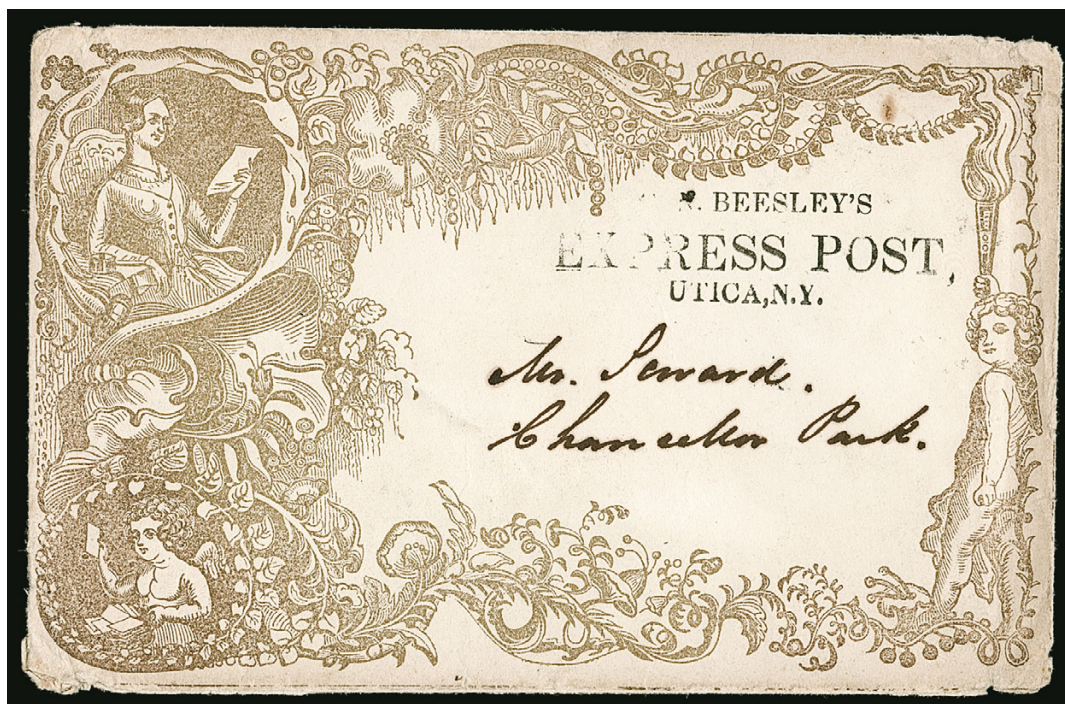 BEESLEY'S
EXPRESS POST,
UTICA, N.Y.
Mr. Seward.
Chancellor Park.